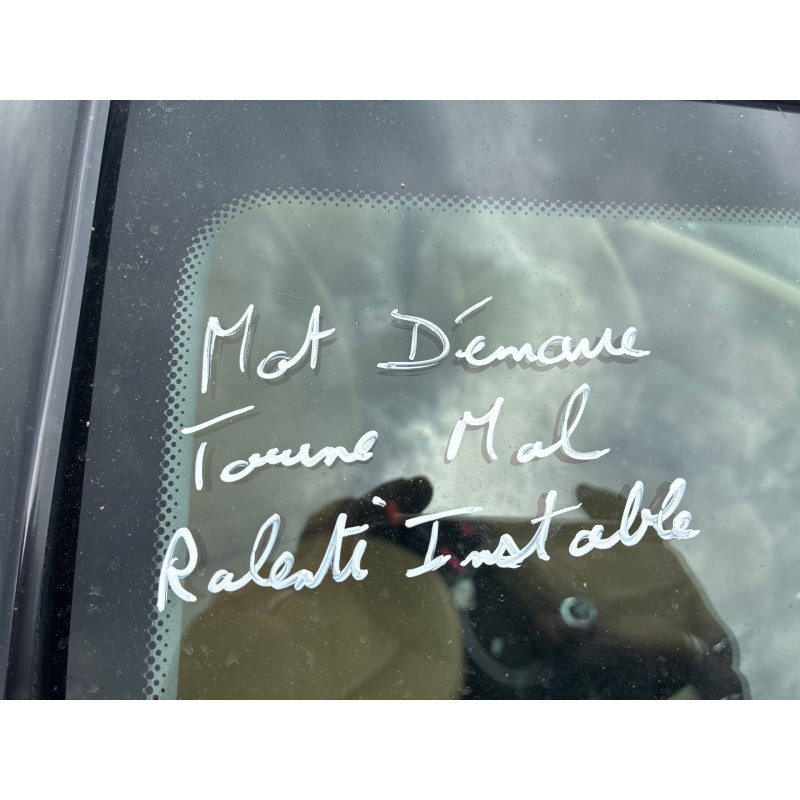 Mot Démarre
Tourne Mal
Ralenti Instable